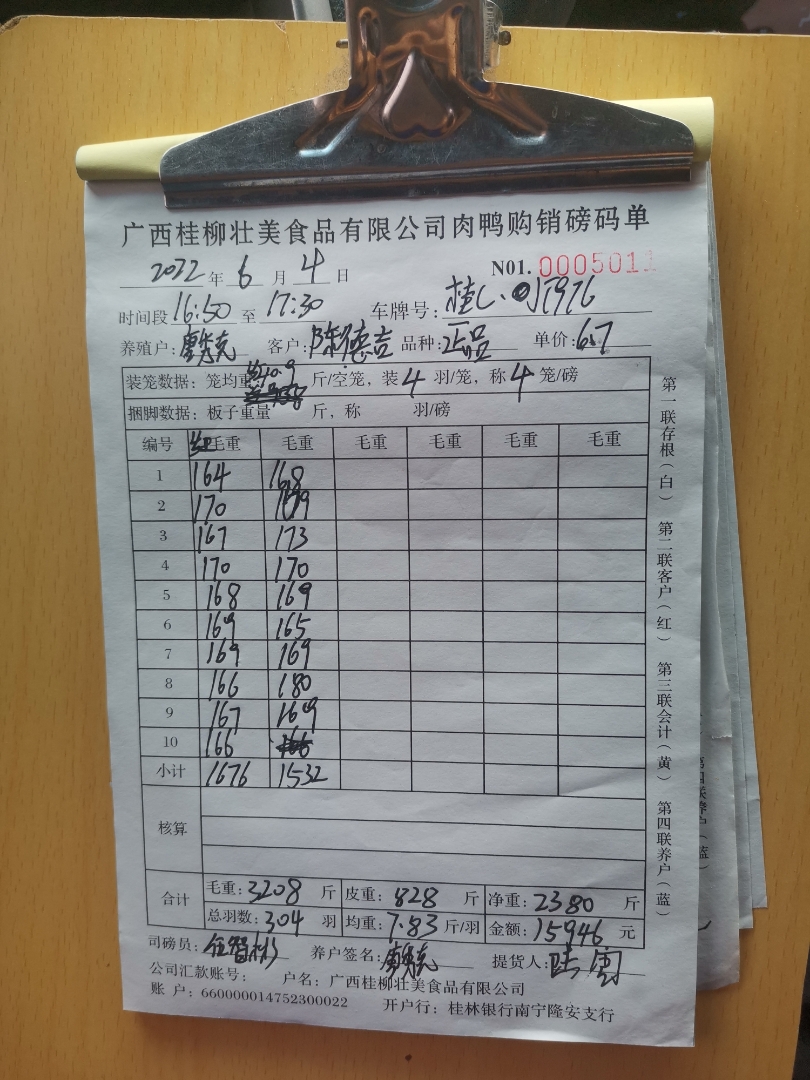 广西桂柳壮美食品有限公司肉鸭购销磅码单
2022 年 6 月 4 日 N01. 0005011
时间段 16:50 至 17:30 车牌号:
养殖户: 客户: 陈德吉 品种: 正品 单价: 6.7
装笼数据: 笼均重 斤/空笼, 装 4 羽/笼, 称 4 笼/磅
捆脚数据: 板子重量 斤, 称 羽/磅
编号 毛重 毛重 毛重 毛重 毛重 毛重
1 164 168
2 170 169
3 167 173
4 170 170
5 168 169
6 169 165
7 169 169
8 166 180
9 167 169
10 166
小计 1676 1532
核算
合计 毛重: 3208 斤 皮重: 828 斤 净重: 2380 斤
总羽数: 304 羽 均重: 7.83 斤/羽 金额: 15946 元
司磅员: 养户签名: 提货人:
公司汇款账号: 户名: 广西桂柳壮美食品有限公司
账 户: 660000014752300022 开户行: 桂林银行南宁隆安支行
第一联存根(白) 第二联客户(红) 第三联会计(黄) 第四联养户(蓝)